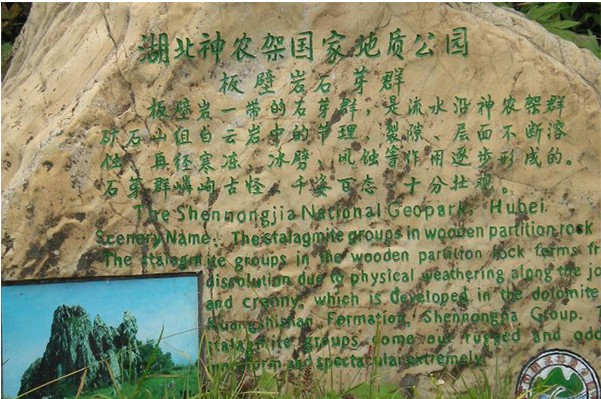 湖北神农架国家地质公园
板壁岩石芽群
板壁岩一带的石芽群，是流水沿神农架群
矿石山组白云岩中的节理，裂隙、层面不断溶
蚀，再经寒冻、冰劈、风蚀等作用逐步形成的。
石芽群嶙峋古怪、千姿百态、十分壮观。
The Shennongjia National Geopark, Hubei.
Scenery Name: The stalagmite groups in wooden partition rock
The stalagmite groups in the wooden partiton rock forms fr
dissolution due to physical weathering along the jo
and cranny, which is developed in the dolomite
Kuangshishan Formation, Shennongjia Group. T
stalagmite groups come our rugged and odd
in form and spectacular extremely.